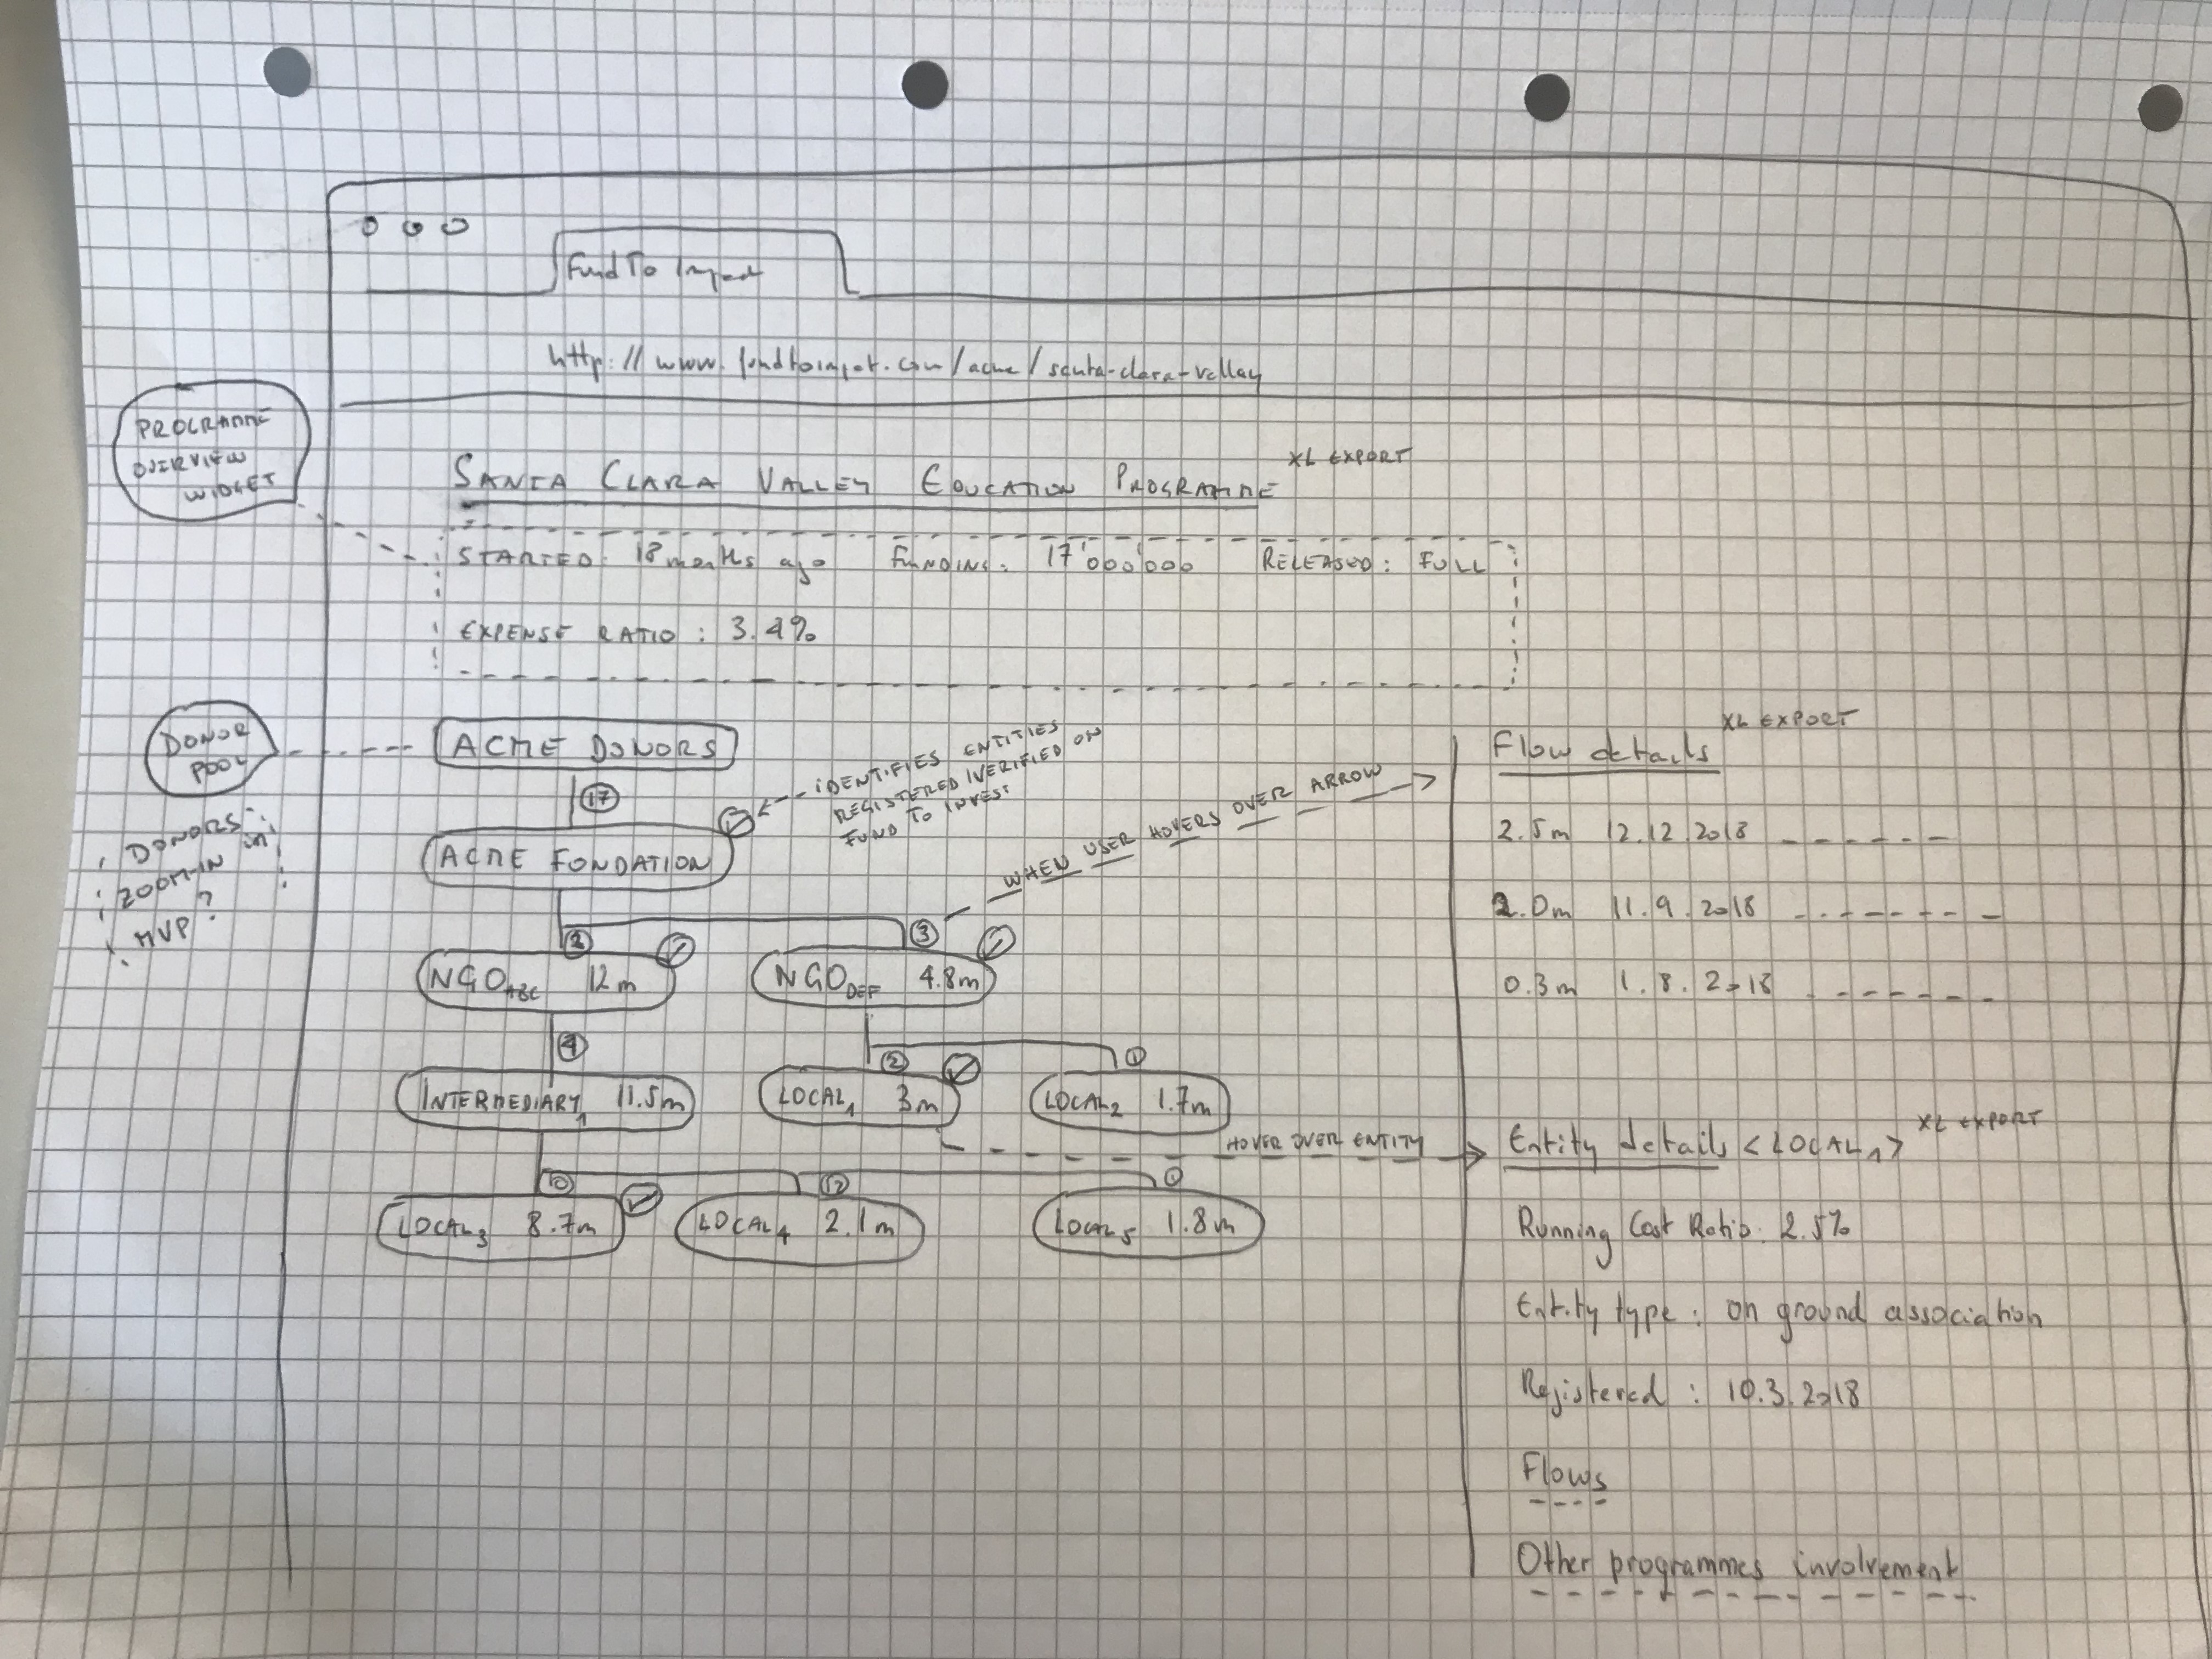 Fund To Impact
http://www.fundtoimpat.com/acme/santa-clara-valley
PROGRAMME
OVERVIEW
WIDGET
XL EXPORT
SANTA CLARA VALLEY EDUCATION PROGRAMME
STARTED: 18 months ago FUNDING: 17'000'000 RELEASED: FULL
EXPENSE RATIO: 3.4%
DONOR
POOL
DONORS
ZOOM-IN in
MVP?
ACME DONORS
17
IDENTIFIES ENTITIES
REGISTERED/VERIFIED ON
FUND TO INVEST
ACME FONDATION
WHEN USER HOVERS OVER ARROW
3
NGO ABC 12m
NGO DEF 4.8m
4
2
1
INTERMEDIARY1 11.5m
LOCAL1 3m
LOCAL2 1.7m
HOVER OVER ENTITY
10
12
1
LOCAL3 8.7m
LOCAL4 2.1m
LOCAL5 1.8m
XL EXPORT
Flow details
2.5m 12.12.2018
2.0m 11.9.2018
0.3m 1.8.2018
XL EXPORT
Entity details <LOCAL1>
Running Cost Ratio: 2.5%
Entity type: on ground association
Registered: 10.3.2018
Flows
Other programmes involvement